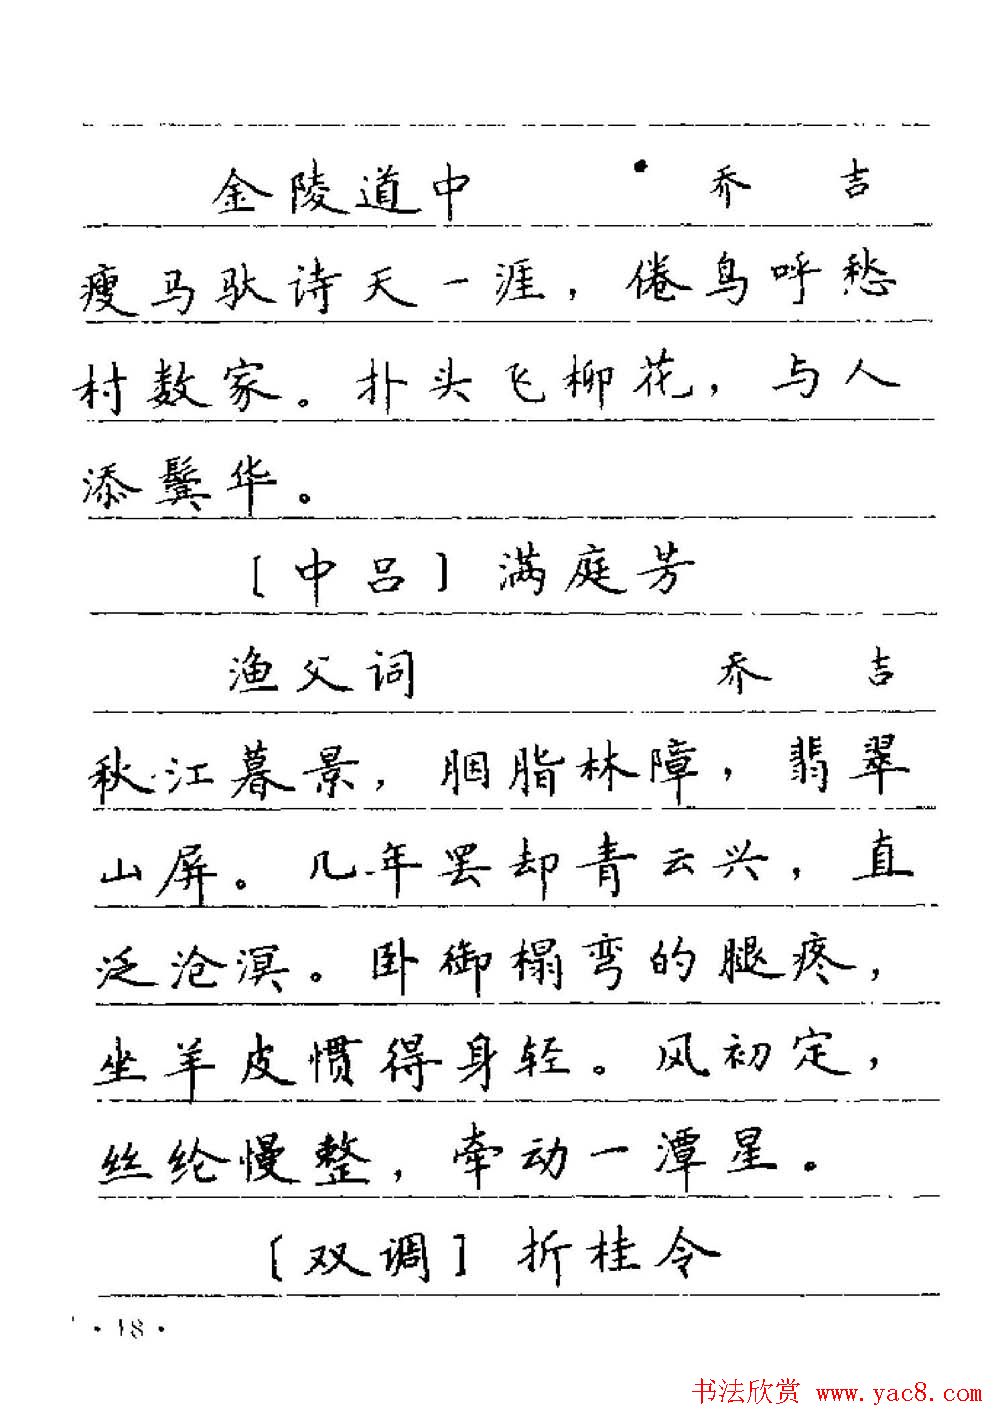 金陵道中 · 乔 吉
瘦马驮诗天一涯，倦鸟呼愁
村数家。扑头飞柳花，与人
添鬓华。
〔中吕〕满庭芳
渔父词 乔 吉
秋江暮景，胭脂林障，翡翠
山屏。几年罢却青云兴，直
泛沧溟。卧御榻弯的腿疼，
坐羊皮惯得身轻。风初定，
丝纶慢整，牵动一潭星。
〔双调〕折桂令
·18·
书法欣赏 www.yac8.com